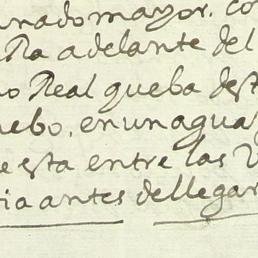 unado mayor. co
Ra adelante del
no Real que ba dest
uebo, en un agua
e esta entre las V
ria antes de llegar